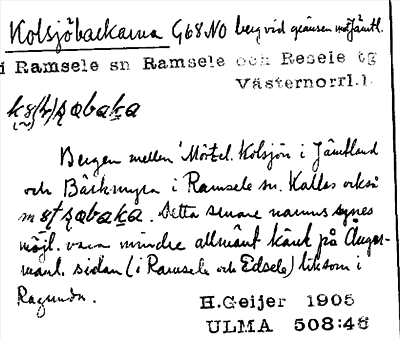 Kolsjöbackarna G68NO berg vid gränsen mot Jämtl.
i Ramsele sn Ramsele och Resele tg
Västernorrl.l.
Bergen mellan Mörtel. Kolsjön i Jämtland
och Bäckmyra i Ramsele sn. Kallas också
Detta senare namns synes
möjl. vara mindre allmänt känt på Ånger-
manl. sidan (i Ramsele och Edsele) liksom i
Ragunda.
H.Geijer 1905
ULMA 508:46